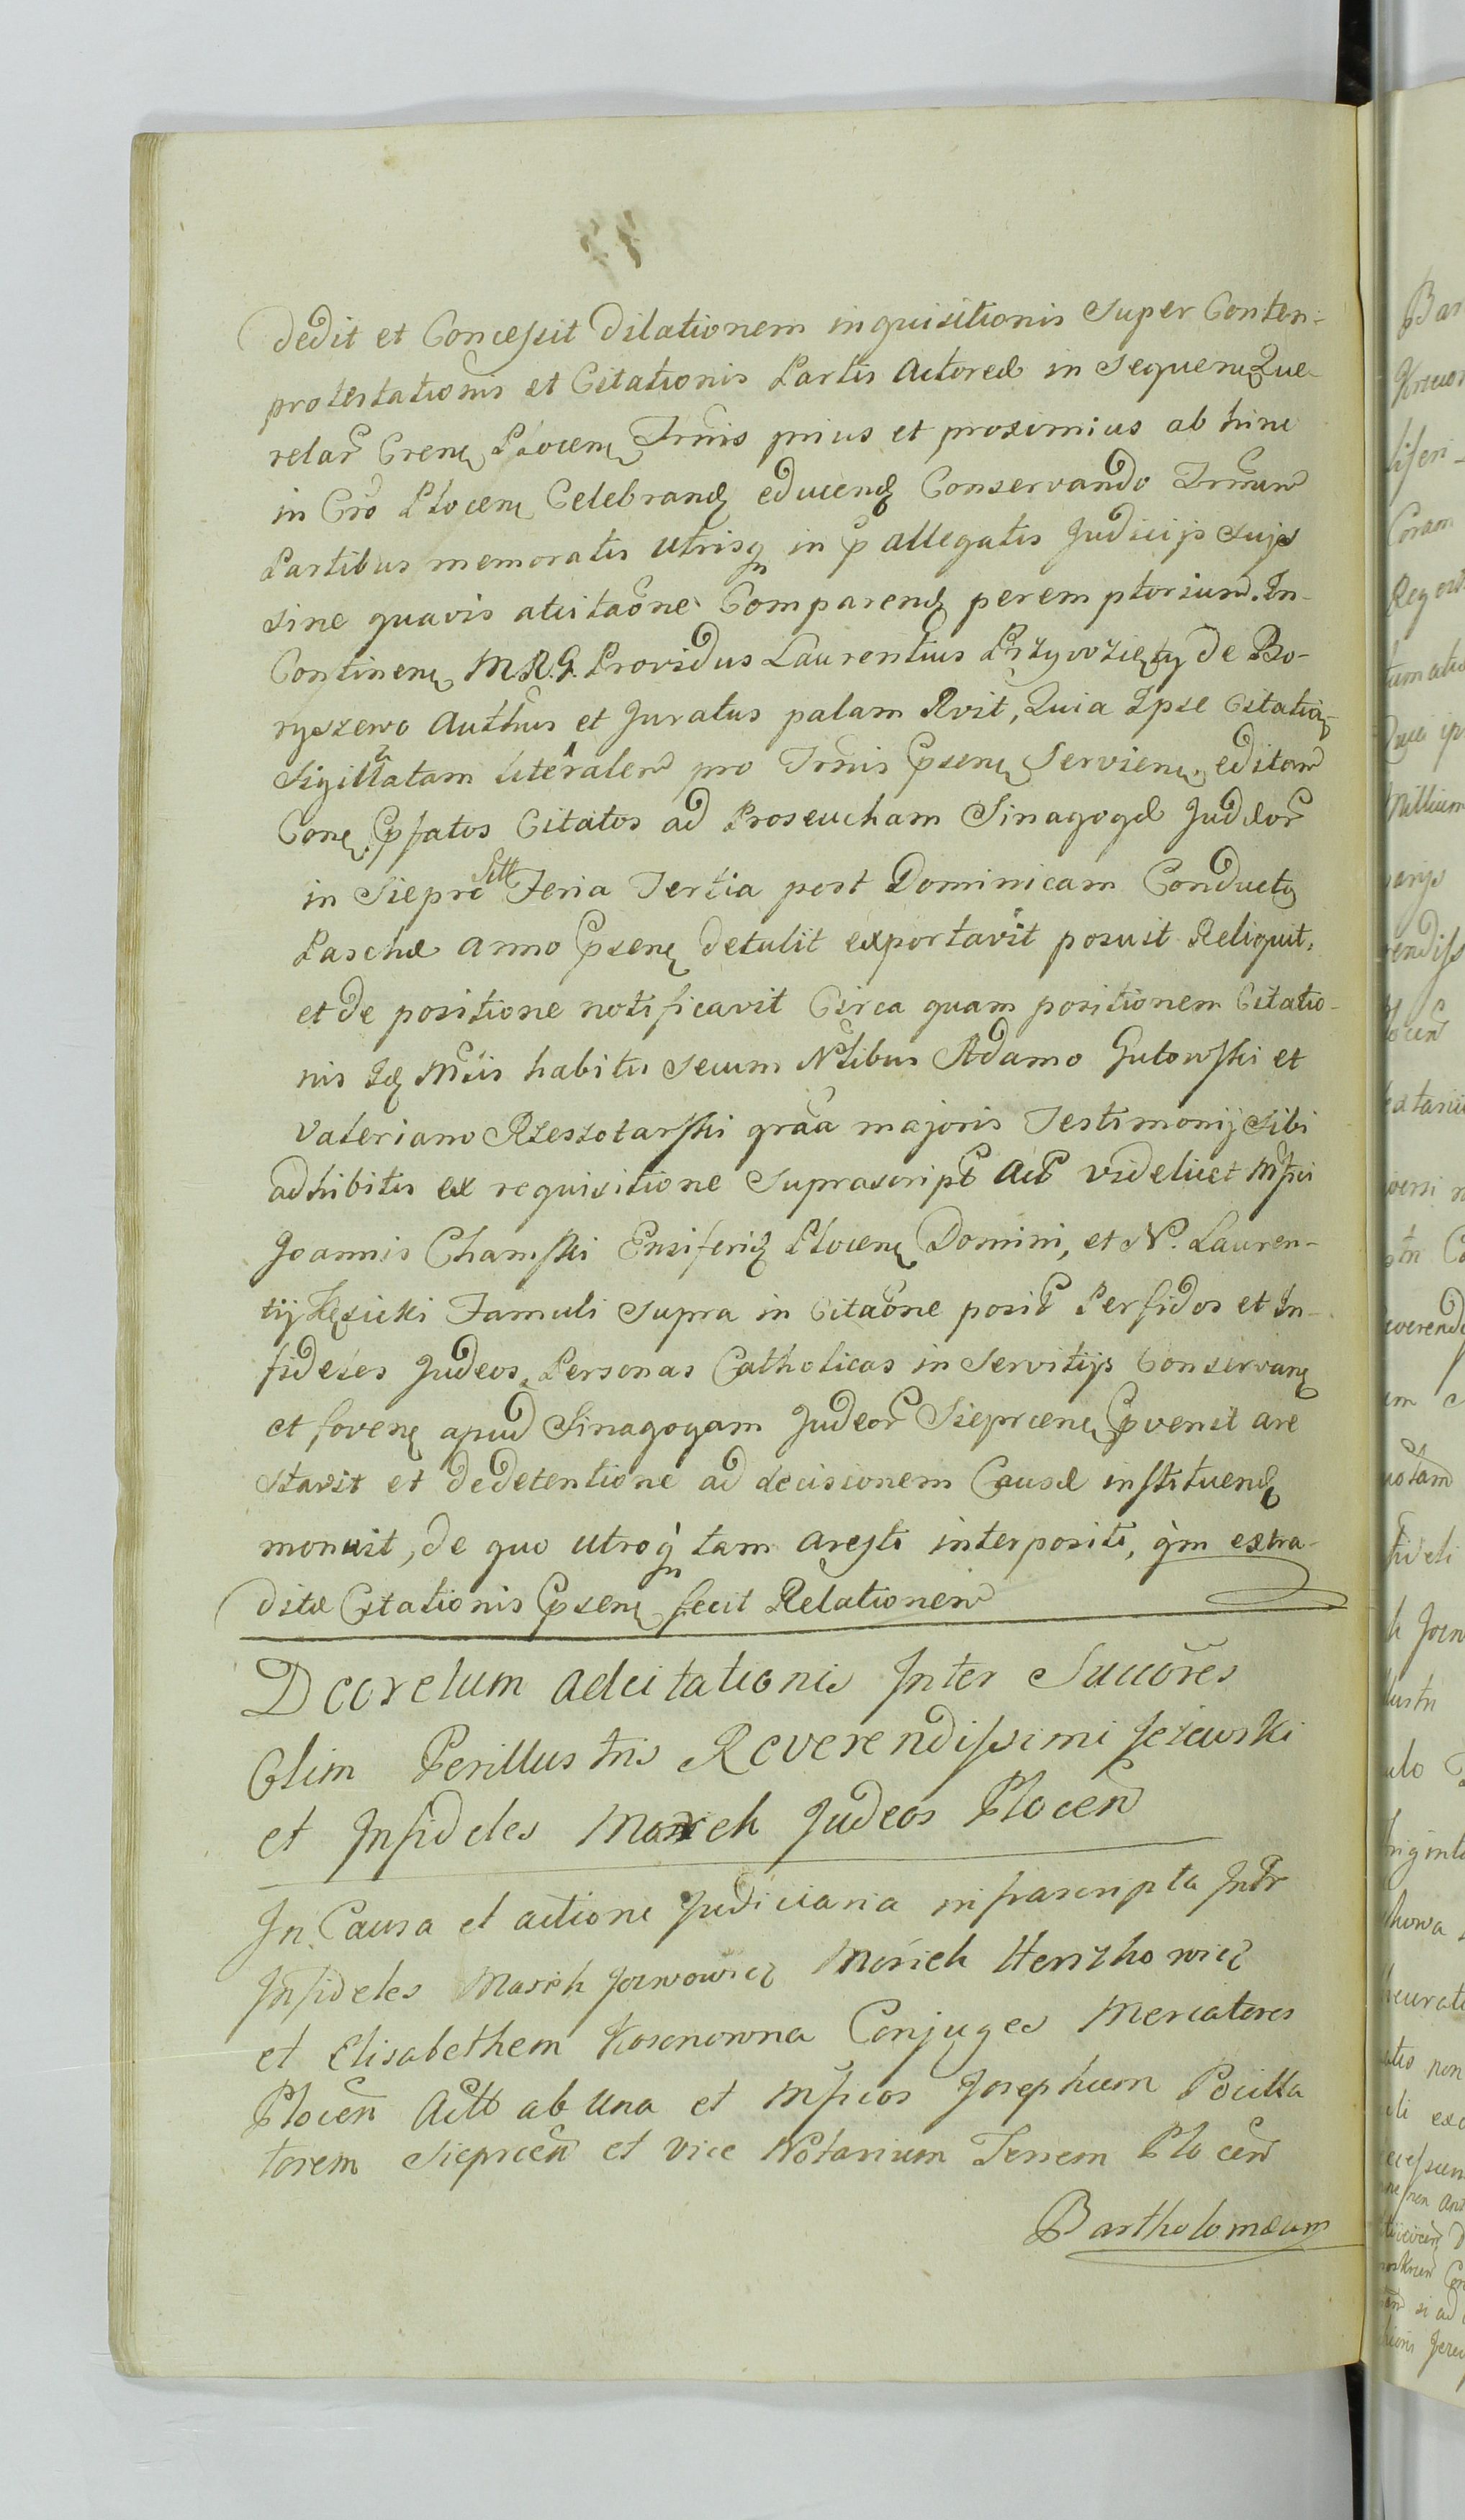 dedit et Concessit dilationem inquisitionis Super Conten-
protestationis et Citationis Partis Actoreæ in Sequen Que-
relar Cren Plocen Trnis prius et proximius ab hinc
in Cro Plocen Celebrand educend Conservando Trnum
Partibus memoratis utrisq in p allegatis Judicijs Sujs
sine quavis atcitaone Comparend peremptorium. In-
Continen M.R.G. Providus Laurentius Przywzięty de Bo-
ryszewo Authus et Juratus palam Rvit, Quia Ipse Citation
Sigillatam literalem pro Trnis Psen Servien editam
Con Pfatos Citatos ad Proseucham Sinagogæ Judæor
in Sieprc Sitt Feria Tertia post Dominicam Conductus
Paschæ anno Psen detulit exportavit posuit Reliquit,
et de positione notificavit Circa quam positionem Citatio-
nis Id Mtis habitis secum Nlibus Adamo Gutowski et
Valeriano Rzeszotarski graa majoris Testimonij Sibi
adhibitis ex requisitione Suprascript Act videlicet Mfici
Joannis Chamski Ensiferid Plocen Domini, et N. Lauren-
tij Kęsicki Famuli supra in Citaone posit Perfidos et In-
fideles Judeos, Personas Catholicas in Servitijs Conservan
et foven apud Sinagogam Judeor Sieprcen Pvenit are
stavit et de detentione ad decisionem Causæ instituend
monuit, de quo utroq tam aresti interpositi, qm extra-
ditæ Citationis Psen fecit Relationem
Decretum adcitationis Inter Succores
Olim Perillustris Reverendissimi Jeżewski
et Infideles Morek Judeos Plocen
In Causa et actione Judiciaria infrascripta Intr
Infideles Marek Jozwowicz Morich Herszkowicz
et Elisabethem Kosonowna Conjuges Mercatores
Plocen Actt ab una et Mficos Josephum Pocilla
torem Sieprcen et vice Notarium Terrem Plocen
Bartholomæum